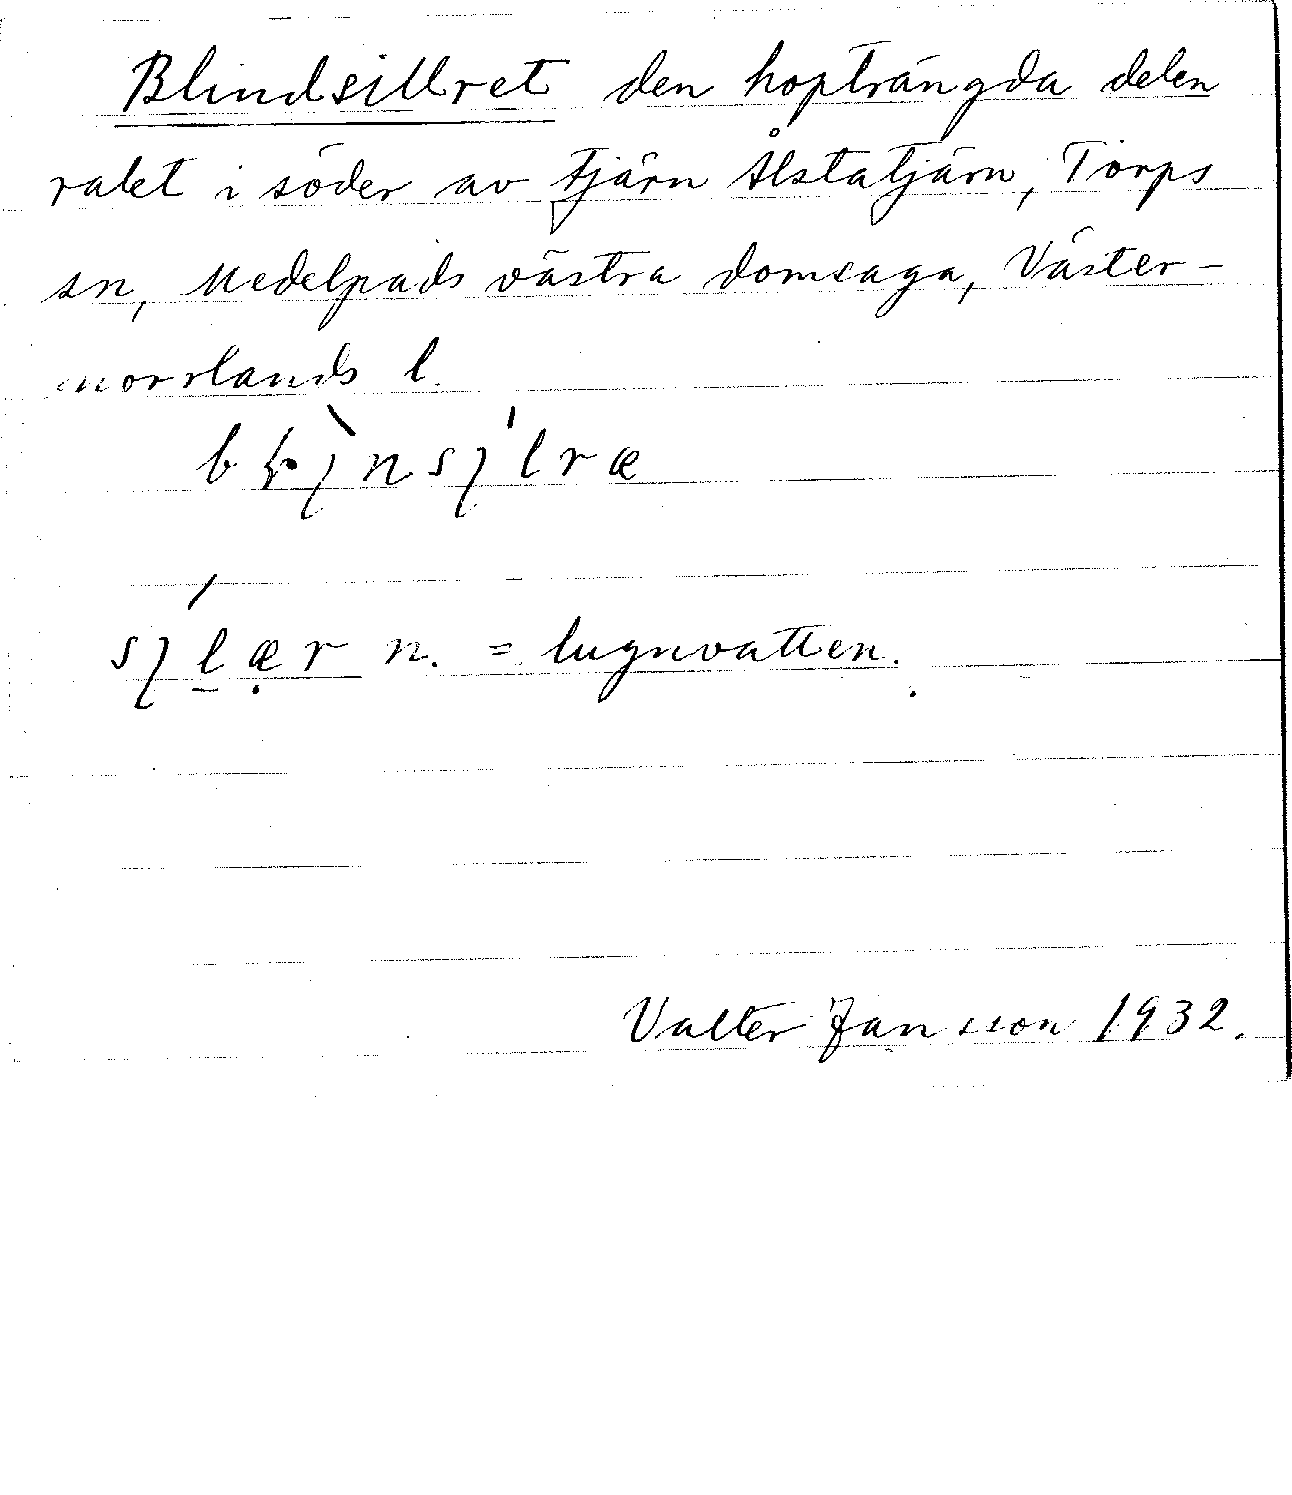 Blindsillret den hopträngda delen
rakt i söder av tjärn Ålstatjärn, Torps
sn, Medelpads västra domsaga, Väster-
norrlands l.
n. = lugnvatten.
Valter Jansson 1932.